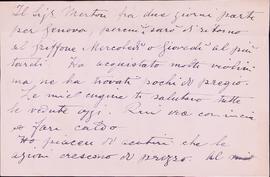 Il Sig. Merton fra due giorni parte
per Genova, perciò sarò di ritorno
al Griffone Mercoledì o Giovedì al più
tardi. Ha acquistato molti violini
ma ne ha trovati pochi di pregio.
Le mie cugine ti salutano tutte
le vedute oggi. Qui ora comincia
a fare caldo.
Ho piacere di sentire che le
azioni crescono di prezzo. Al